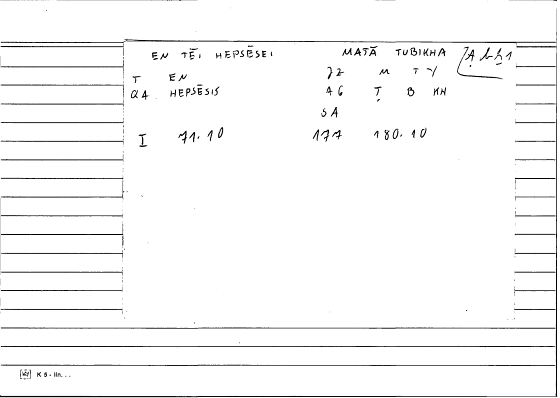 EN TĒI HEPSĒSEI MATĀ TUBIKHA
T EN 22 M T Y
QA HEPSĒSIS AG Ṭ B KH
SA
I 71.10 177 180.10
K 5 - IIn. . .